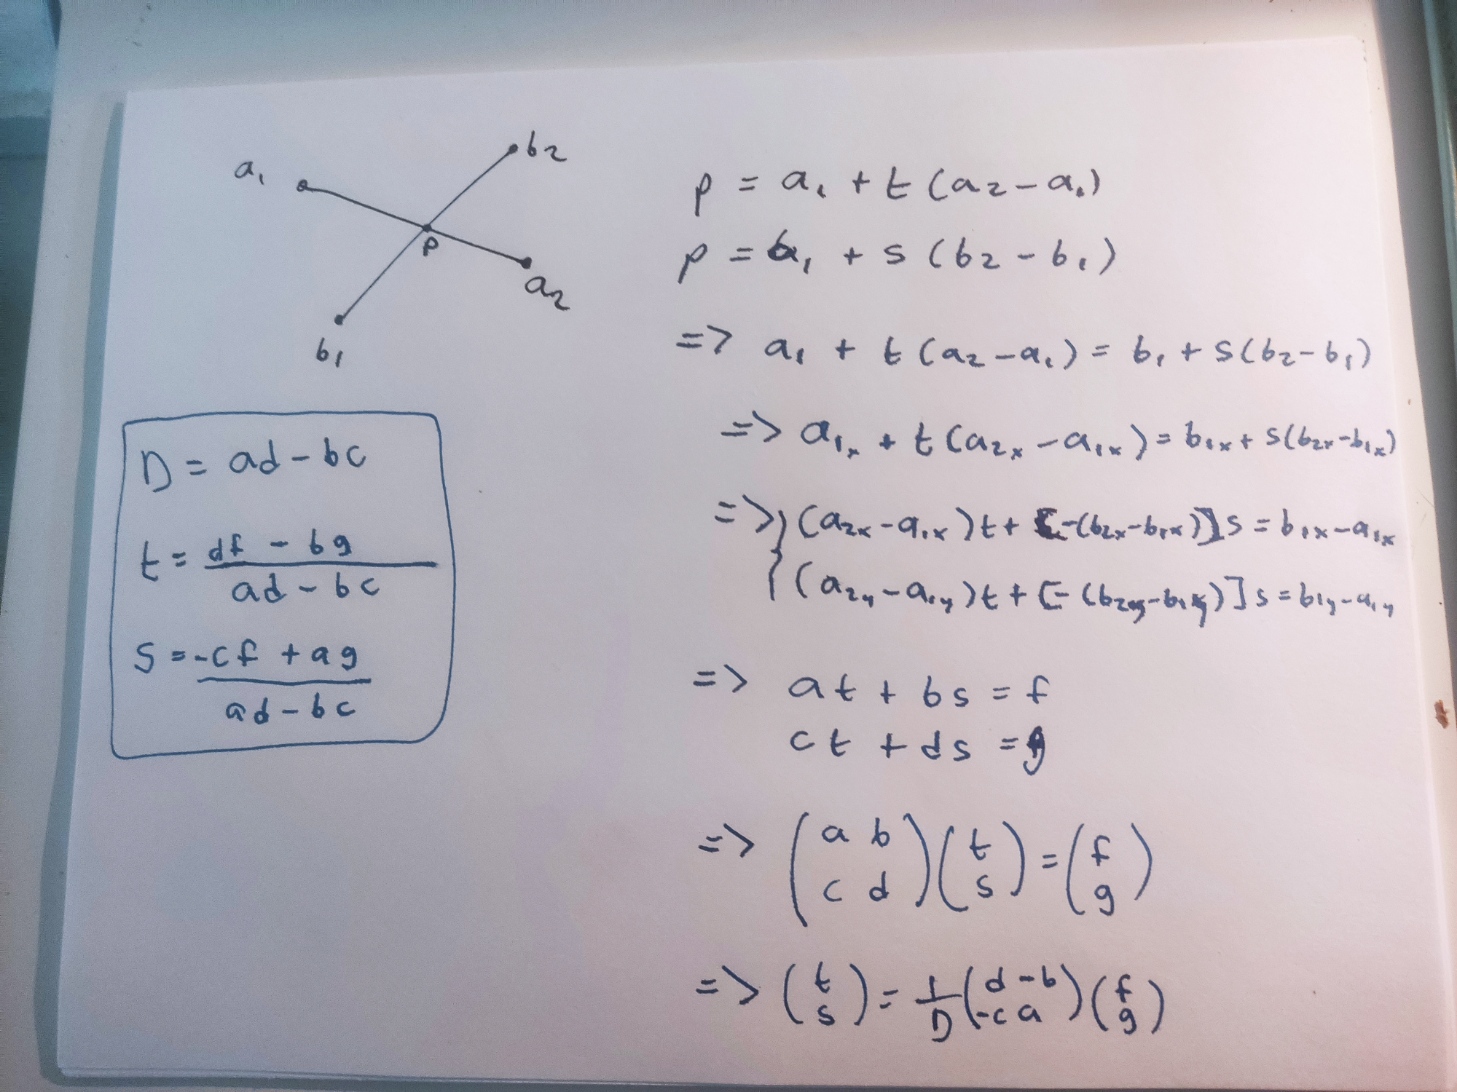 a₁
b₂
p
a₂
b₁
D = ad - bc
t = (df - bg) / (ad - bc)
s = (-cf + ag) / (ad - bc)
p = a₁ + t (a₂ - a₁)
p = b₁ + s (b₂ - b₁)
=> a₁ + t (a₂ - a₁) = b₁ + s (b₂ - b₁)
=> a₁ₓ + t (a₂ₓ - a₁ₓ) = b₁ₓ + s (b₂ₓ - b₁ₓ)
=> { (a₂ₓ - a₁ₓ) t + [-(b₂ₓ - b₁ₓ)] s = b₁ₓ - a₁ₓ
(a₂y - a₁y) t + [-(b₂y - b₁y)] s = b₁y - a₁y
=> at + bs = f
ct + ds = g
=> (a b; c d) (t; s) = (f; g)
=> (t; s) = 1/D (d -b; -c a) (f; g)